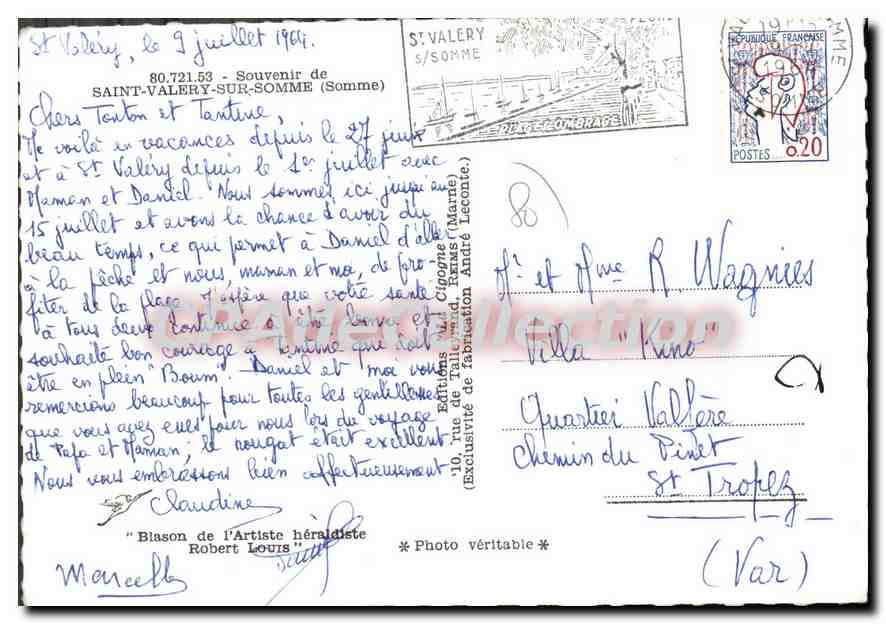 St Valéry, le 9 juillet 1964.
80.721.53 - Souvenir de
SAINT-VALERY-SUR-SOMME (Somme)
Chers Tonton et Tantine,
Me voilà en vacances depuis le 27 juin
et à St Valéry depuis le 1er juillet avec
Maman et Daniel. Nous sommes ici jusqu'au
15 juillet et avons la chance d'avoir du
beau temps, ce qui permet à Daniel d'aller
à la pêche et nous, maman et moi, de pro-
fiter de la plage. J'espère que votre santé
à tous deux continue à être bonne et
souhaite bon courage à Tantine qui doit
être en plein "Boum". Daniel et moi vous
remercions beaucoup pour toutes les gentillesses
que vous avez eues pour nous lors du voyage
de Papa et Maman; le nougat était excellent.
Nous vous embrassons bien affectueusement
Claudine
"Blason de l'Artiste héraldiste
Robert Louis"
Marcelle
Editions "La Cigogne"
10, rue de Talleyrand, REIMS (Marne)
(Exclusivité de fabrication André Leconte.)
* Photo véritable *
ST VALERY
S/SOMME
PLAGE OMBRAGÉE
SOMME
RÉPUBLIQUE FRANÇAISE
POSTES
0.20
80
Mr et Mme R. Wagnies
Villa "Kino"
Quartier Valfère
Chemin du Pinet
St Tropez
(Var)
CPA de Collection